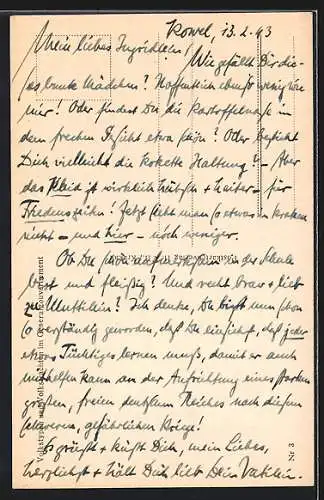 Kowel, 13.2.43
Mein liebes Ingridlein!
Wie gefällt Dir die-
ses bunte Mädchen? Hoffentlich ebenso wenig wie
mir! Oder findest Du die Kartoffelnase in
dem frechen Gesicht etwa schön? Oder besticht
Dich vielleicht die kokette Haltung? – Aber
das Kleid ist wirklich hübsch + heiter – für
Friedenszeiten! Jetzt sieht man so etwas in
nicht – und hier – noch weniger.
Ob Du jetzt in der Schule
bist und fleißig? Und recht brav + lieb
zu Muttilein? Ich denke, Du bist nun schon
so verständig geworden, daß Du einsiehst, daß jeder
etwas Tüchtiges lernen muß, damit er auch
mithelfen kann an der Aufrichtung eines starken
großen, freien deutschen Reiches nach diesem
schweren, gefährlichen Kriege!
Es grüßt + küßt Dich, mein Liebes,
herzlichst + hält Dich lieb Dein Vatilein.
Volkstypen und Volkstrachten im Generalgouvernement
Nr 3